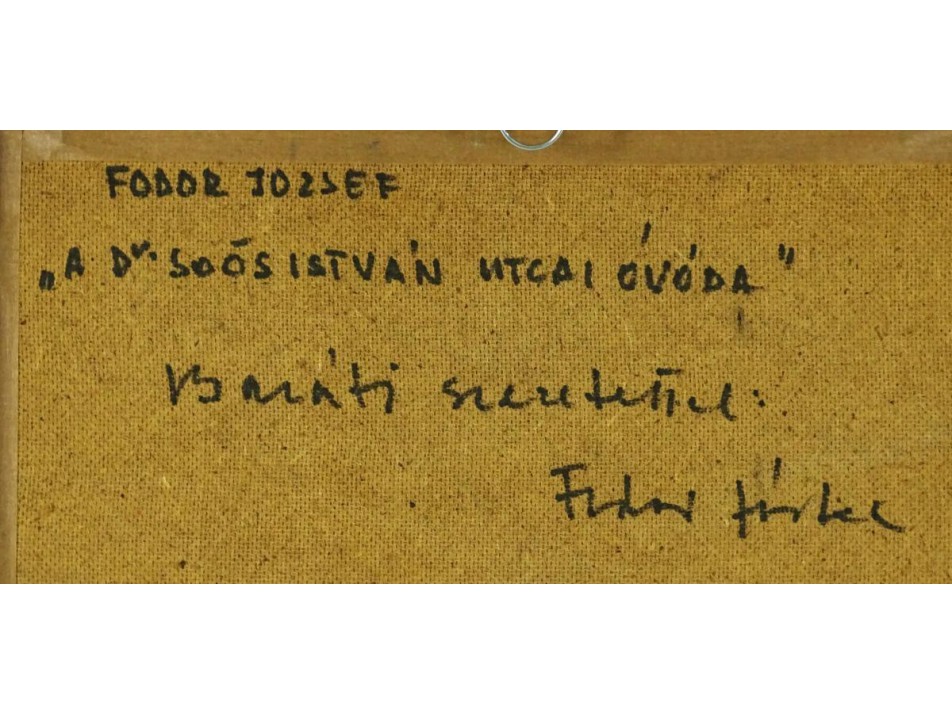 FODOR JOZSEF
„A Dr. SOÓS ISTVÁN UTCAI ÓVÓDA"
Baráti szeretettel:
Fodor Jóska